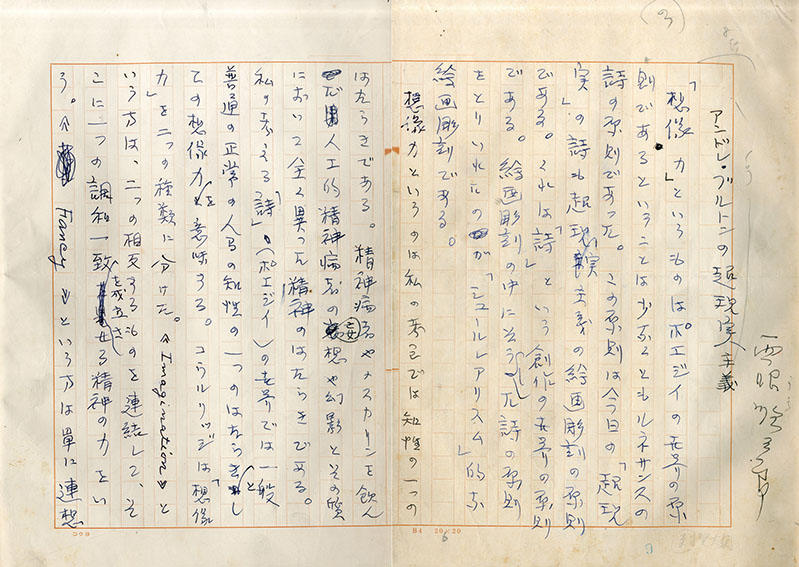 ③
アンドレ・ブルトンの超現実主義
西脇順三郎
「想像力」というものはポエジイの世界の原
則であるということは少くともルネサンスの
詩の原則であった。この原則は今日の「超現
実」の詩も超現実主義の絵画彫刻の原則
である。それは「詩」という創作の世界の原則
である。絵画彫刻の中にそうした詩の原則
をとりいれたのが「シュールレアリスム」的な
絵画彫刻である。
想像力というのは私の考えでは知性の一つの
はたらきである。精神病者やメスカリンを飲ん
だ人工的精神病者の妄想や幻影とその質
において全く異った精神のはたらきである。
私の考える「詩」(ポエジイ)の世界では一般
普通の正常の人間の知性の一つのはたらきとし
ての想像力を意味する。コウルリッジは「想像
力」を二つの種類に分けた。《Imagination》と
いう方は、二つの相反するものを連結して、そ
こに一つの調和一致を成立させる精神の力をい
う。《Fancy》という方は単に連想
B4 20×20
6